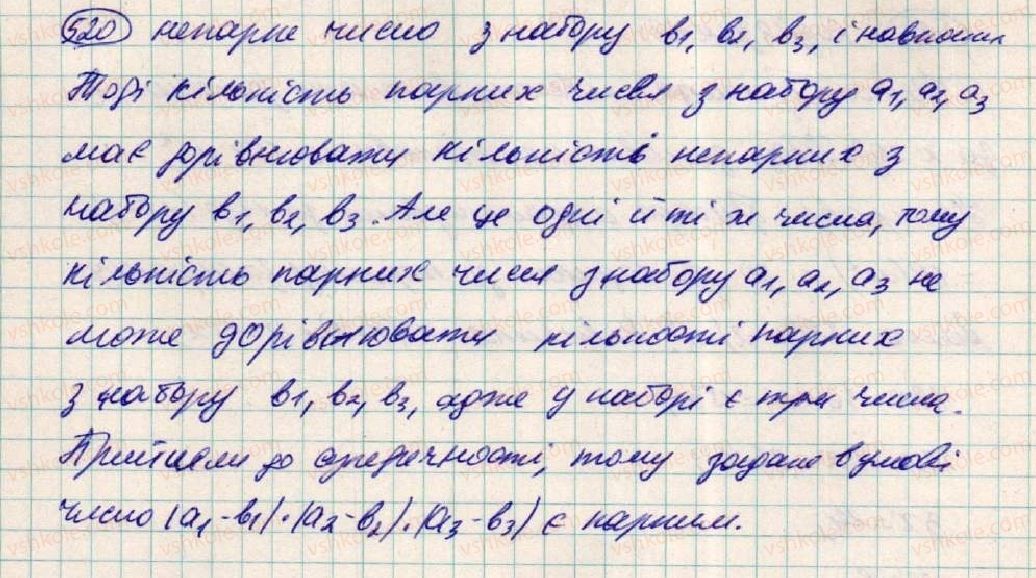 520 непарне число з набору в1, в2, в3, і навпаки.
Тоді кількість парних чисел з набору а1, а2, а3
має дорівнювати кількість непарних з
набору в1, в2, в3. Але це одні й ті ж числа, тому
кількість парних чисел з набору а1, а2, а3 не
може дорівнювати кількості парних
з набору в1, в2, в3, адже у наборі є три числа.
Прийшли до суперечності, тому задане в умові
число (а1-в1)·(а2-в2)·(а3-в3) є парним.